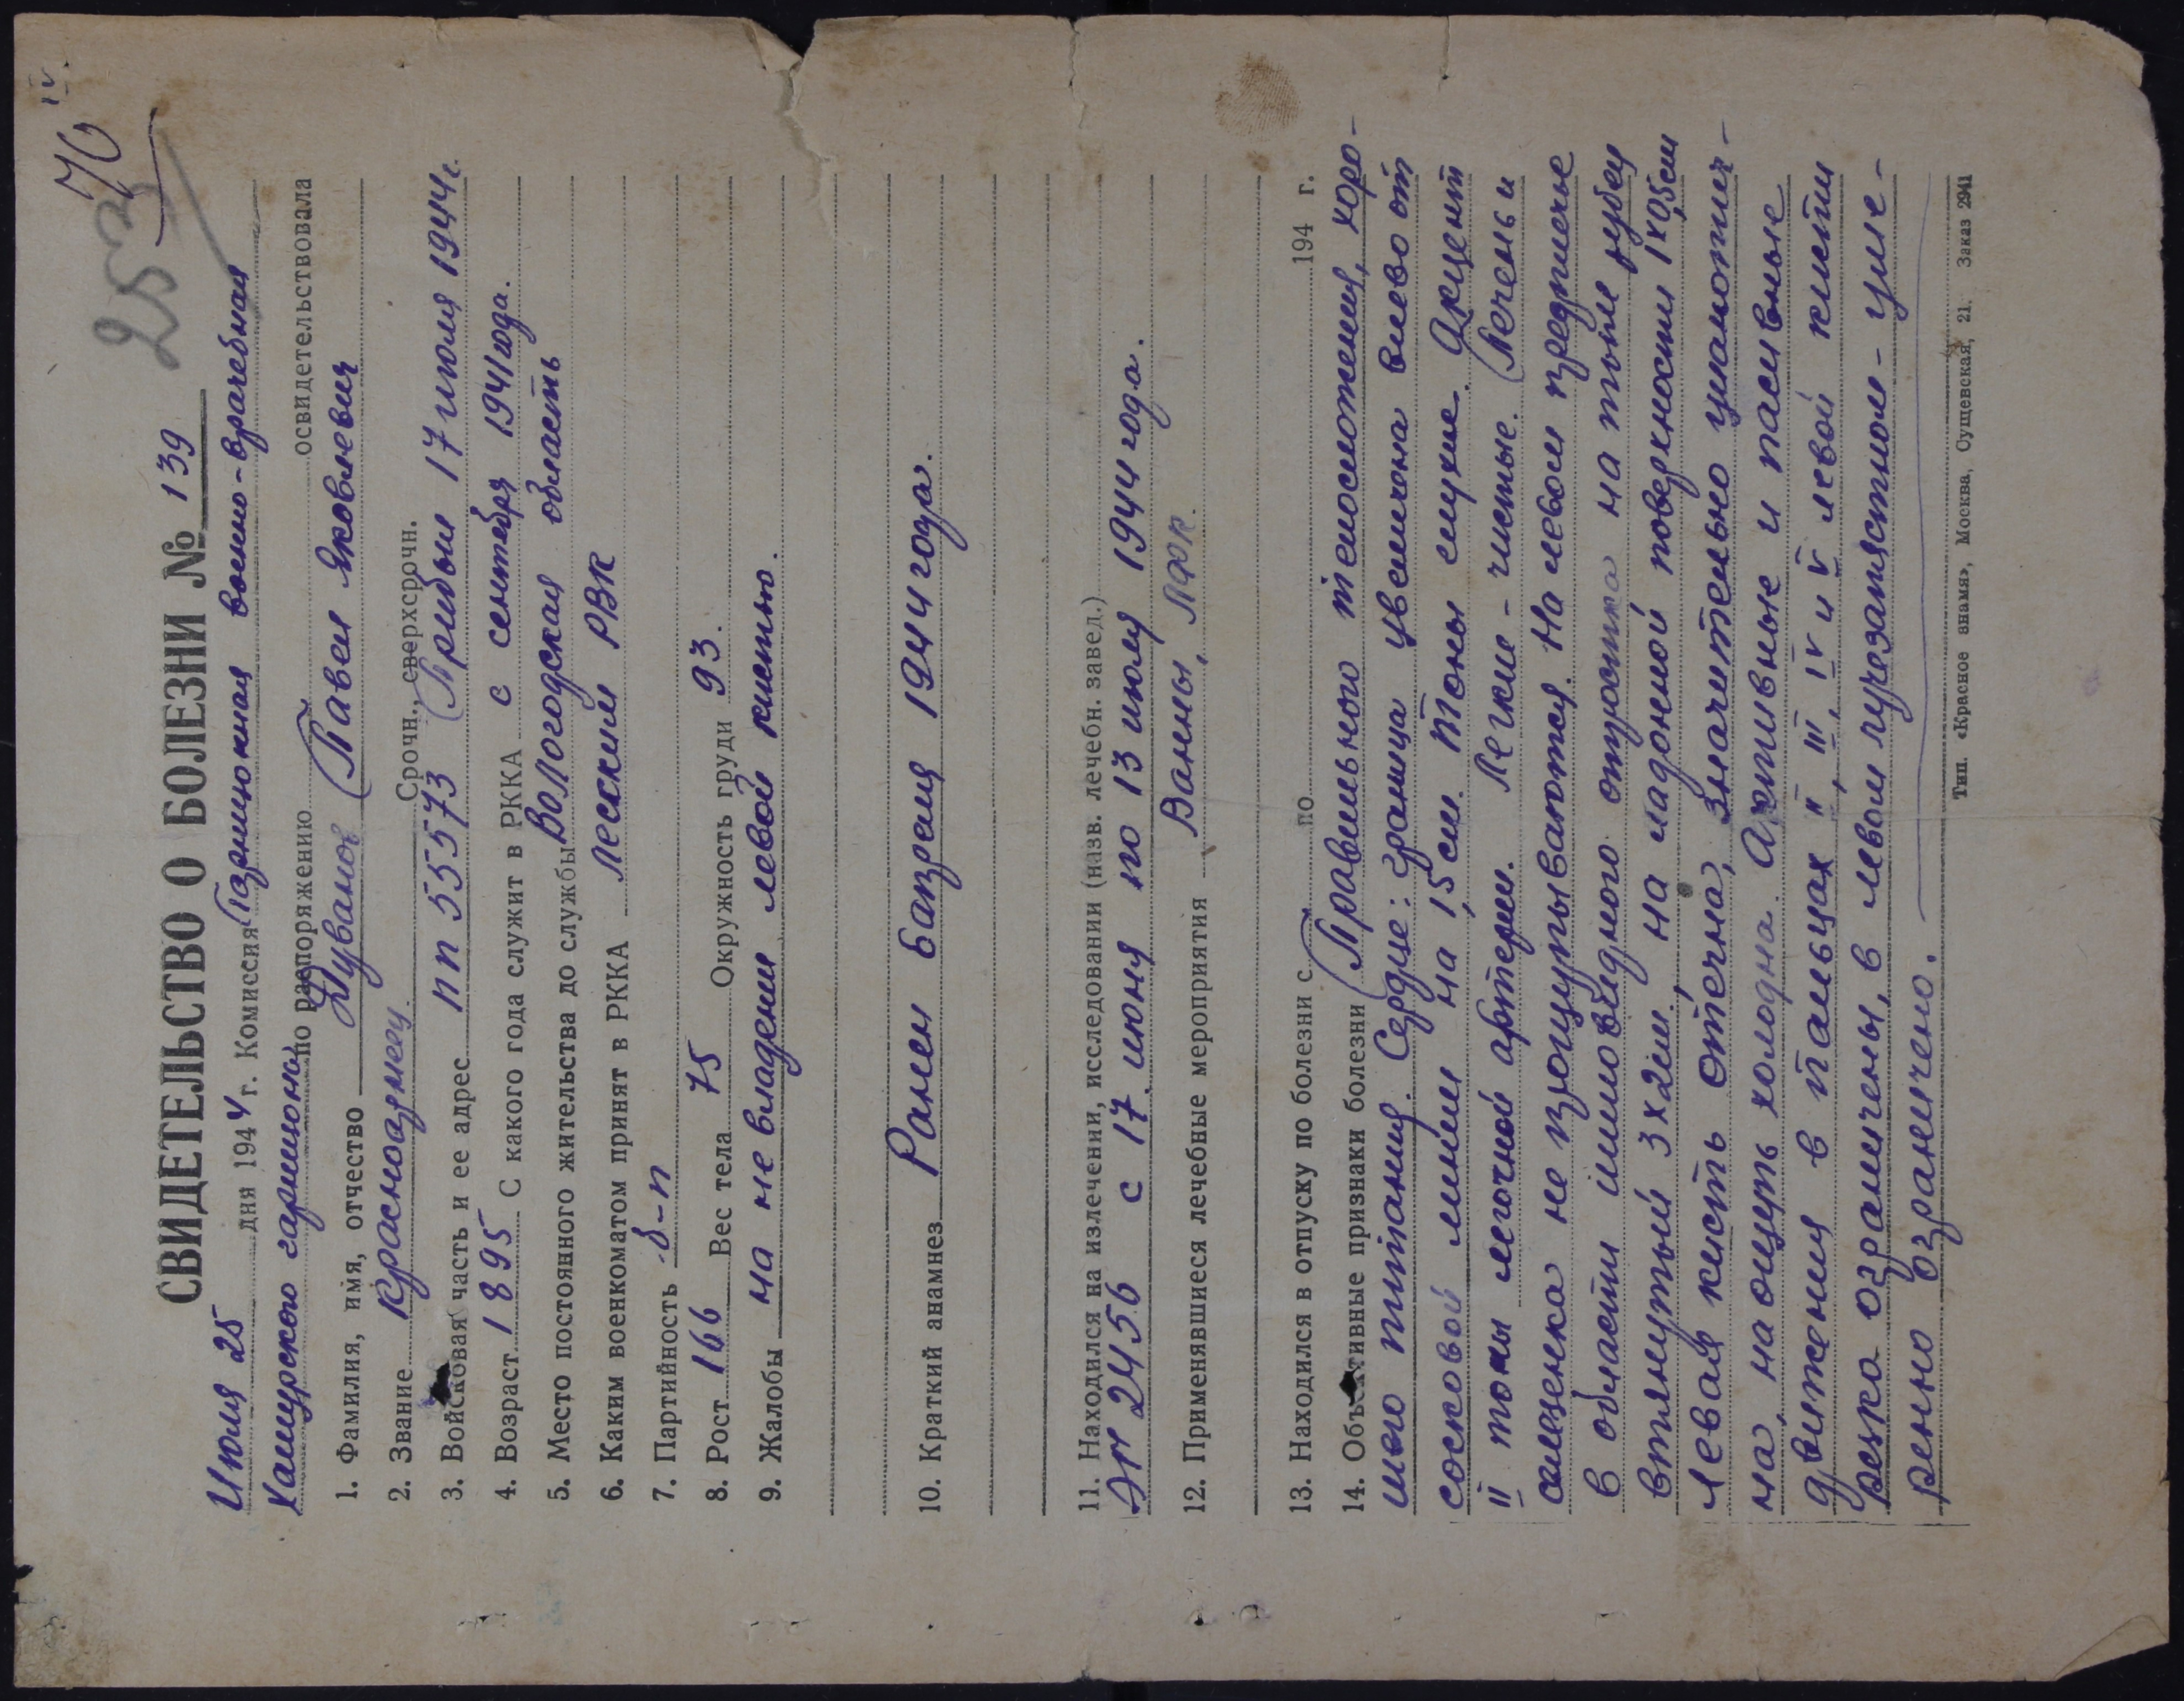 70 IV.
253
СВИДЕТЕЛЬСТВО О БОЛЕЗНИ № 139
Июля 25 дня 1944 г. Комиссия Гарнизонная военно-врачебная
Хашурского гарнизона по распоряжению освидетельствовала
1. Фамилия, имя, отчество Дуванов Павел Яковлевич
2. Звание Красноармеец Срочн., сверхсрочн.
3. Войсковая часть и ее адрес пп 55573 Прибыл 17 июля 1944г.
4. Возраст 1895 С какого года служит в РККА с сентября 1941 года.
5. Место постоянного жительства до службы Вологодская область
6. Каким военкоматом принят в РККА Лесский РВК
7. Партийность б-п
8. Рост 166 Вес тела 75 Окружность груди 93.
9. Жалобы на не владении левой кистью.
10. Краткий анамнез Ранен 6 апреля 1944 года.
11. Находился на излечении, исследовании (назв. лечебн. завед.)
ЭГ 2456 с 17 июня по 13 июля 1944 года.
12. Применявшиеся лечебные мероприятия Ванны, ЛФК.
13. Находился в отпуску по болезни с по 194 г.
14. Объективные признаки болезни Правильного телосложения, хоро-
шего питания. Сердце: граница увеличена влево от
сосковой линии на 1,5 см. Тоны глухие. Акцент
II тоны легочной артерии. Легкие - чистые. Печень и
селезенка не прощупываются. На левом предплечье
в области шиловидного отростка на тыле рубец
втянутый 3х2см, на ладонной поверхности 1х0,5см
Левая кисть отечна, значительно уплотнен-
на, на ощупь холодна. Активные и пасивные
движения в пальцах II, III, IV и V левой кисти
резко ограничены, в левом лучезапястном - уме-
ренно ограничено.
Тип. «Красное знамя», Москва, Сущевская, 21. Заказ 2941